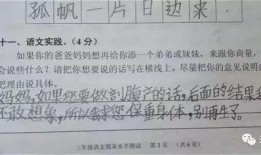 孤帆一片日边来.
十一、语文实践。（4 分）
如果你的爸爸妈妈想再给你添一个弟弟或妹妹，来跟你商量，
会说些什么？请把你想要说的话写在横线上，尽量把你的意见说明
把理由说具体。
妈妈，如果您要做剖腹产的话，后面的结果我
不敢想象，所以求您保重身体，别再生了
三年级语文期末水平测试 第 3 页 （共 6 页）